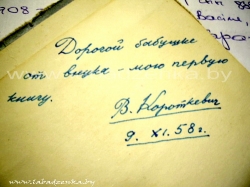 708
Дорогой бабушке
от внука - мою первую
книгу.
В. Короткевич
9. XI. 58 г.
www.labadzenka.by